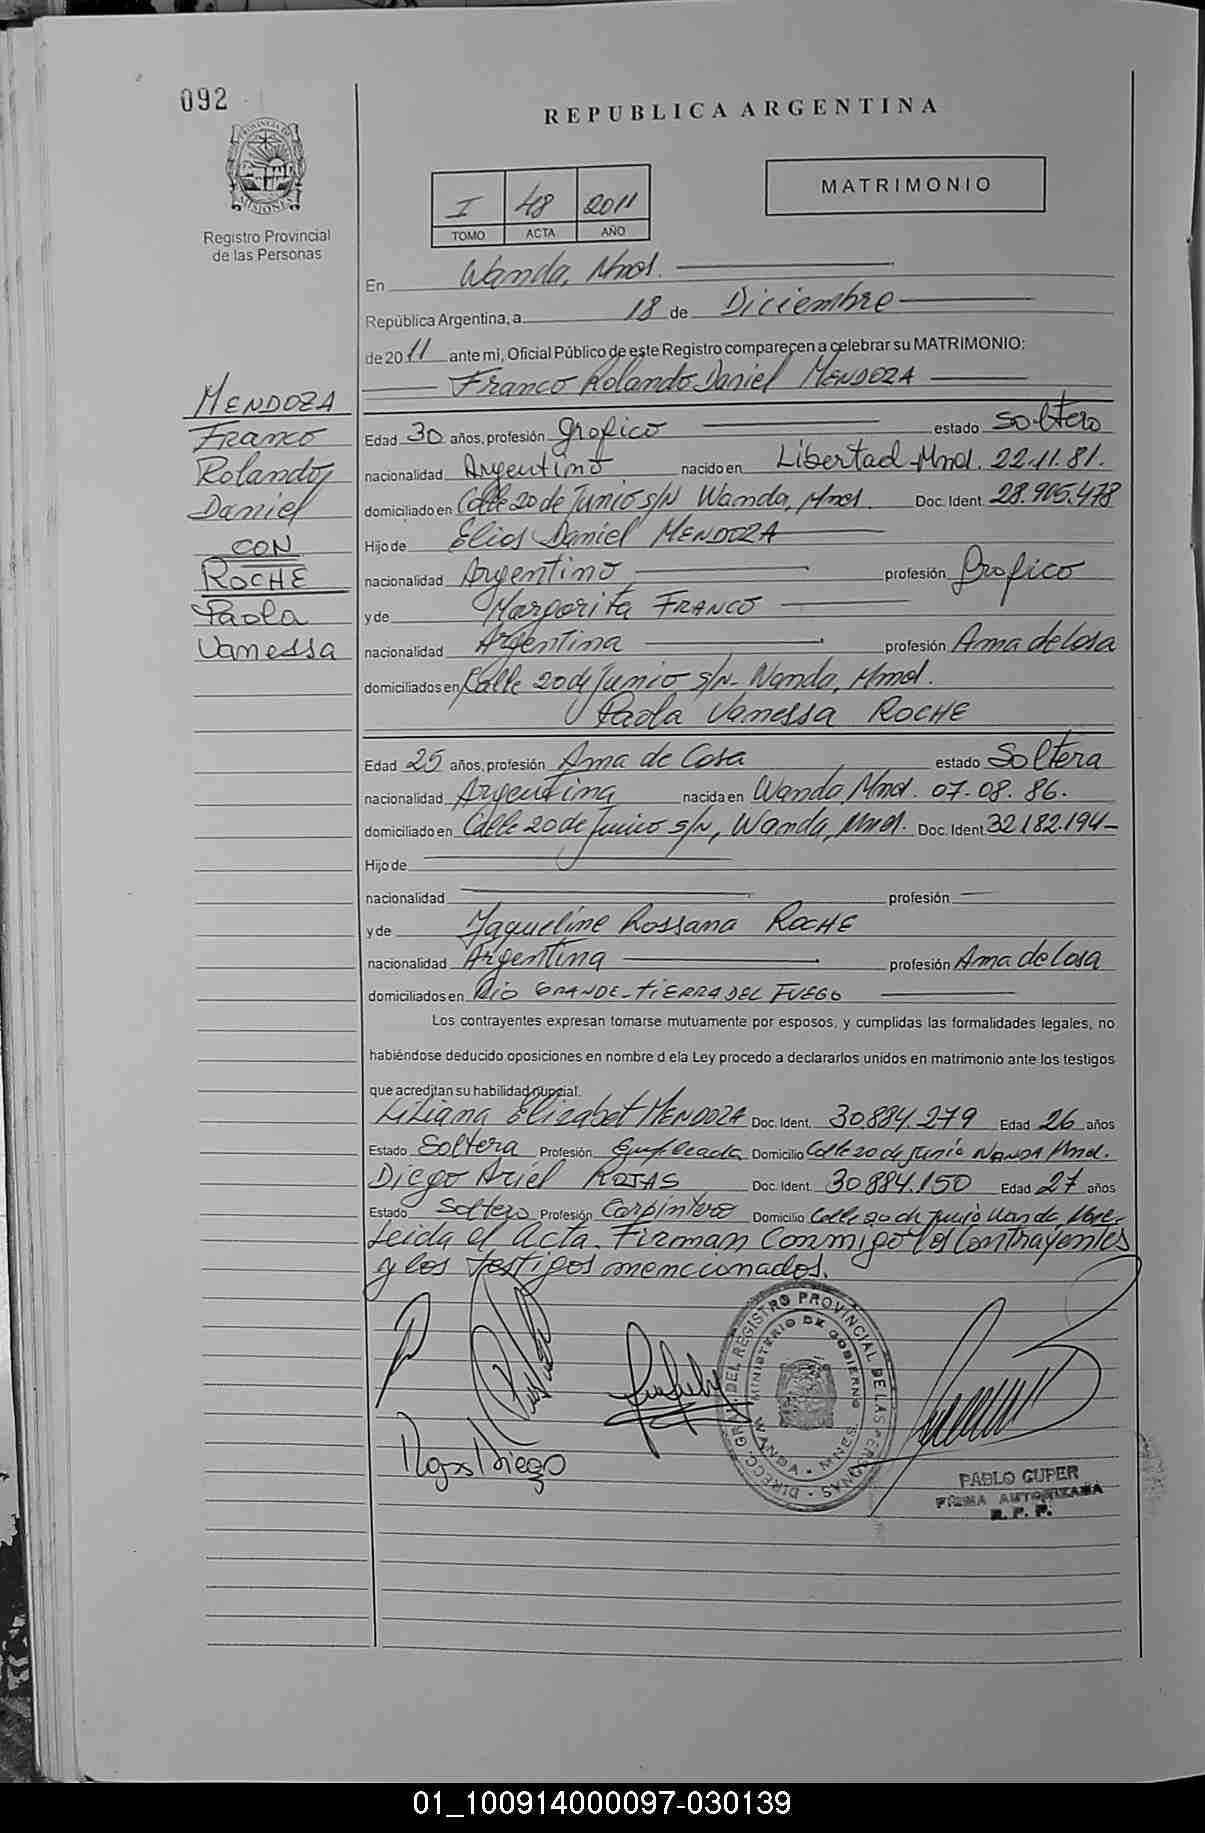 092
REPUBLICA ARGENTINA
PROVINCIA DE
MISIONES
Registro Provincial
de las Personas
I 48 2011
TOMO ACTA AÑO
MATRIMONIO
En Wanda, Mnes.
República Argentina, a 18 de Diciembre
de 2011 ante mi, Oficial Público de este Registro comparecen a celebrar su MATRIMONIO:
Franco Rolando Daniel MENDOZA
MENDOZA
Franco
Rolando
Daniel
CON
ROCHE
Paola
Vanessa
Edad 30 años, profesión Grafico estado Soltero
nacionalidad Argentino nacido en Libertad Mnes. 22.11.81.
domiciliado en Calle 20 de Junio s/N Wanda, Mnes. Doc. Ident. 28.905.478
Hijo de Elias Daniel MENDOZA
nacionalidad Argentino profesión Grafico
y de Margarita FRANCO
nacionalidad Argentina profesión Ama de Casa
domiciliados en Calle 20 de Junio s/N- Wanda, Mnes.
Paola Vanessa ROCHE
Edad 25 años, profesión Ama de Casa estado Soltera
nacionalidad Argentina nacida en Wanda Mnes. 07-08.86.
domiciliado en Calle 20 de Junio s/N, Wanda, Mnes. Doc. Ident. 32.182.194-
Hijo de
nacionalidad profesión
y de Jaqueline Rossana ROCHE
nacionalidad Argentina profesión Ama de Casa
domiciliados en RIO GRANDE-TIERRA DEL FUEGO
Los contrayentes expresan tomarse mutuamente por esposos, y cumplidas las formalidades legales, no
habiéndose deducido oposiciones en nombre d ela Ley procedo a declararlos unidos en matrimonio ante los testigos
que acreditan su habilidad nupcial.
Liliana Elizabet MENDOZA Doc. Ident. 30.884.279 Edad 26 años
Estado Soltera Profesión Empleada Domicilio Calle 20 de Junio WANDA Mnes.
Diego Ariel ROJAS Doc. Ident. 30.884.150 Edad 27 años
Estado Soltero Profesión Carpintero Domicilio Calle 20 de Junio Wanda, Mnes.
Leida el Acta. Firman Conmigo los Contrayentes
y los testigos mencionados.
Rojas Diego
DIRECC. GRAL. DEL REGISTRO PROVINCIAL DE LAS PERSONAS
MINISTERIO DE GOBIERNO
WANDA - MNES.
PABLO GUPER
FIRMA AUTORIZADA
R. P. P.
01_100914000097-030139